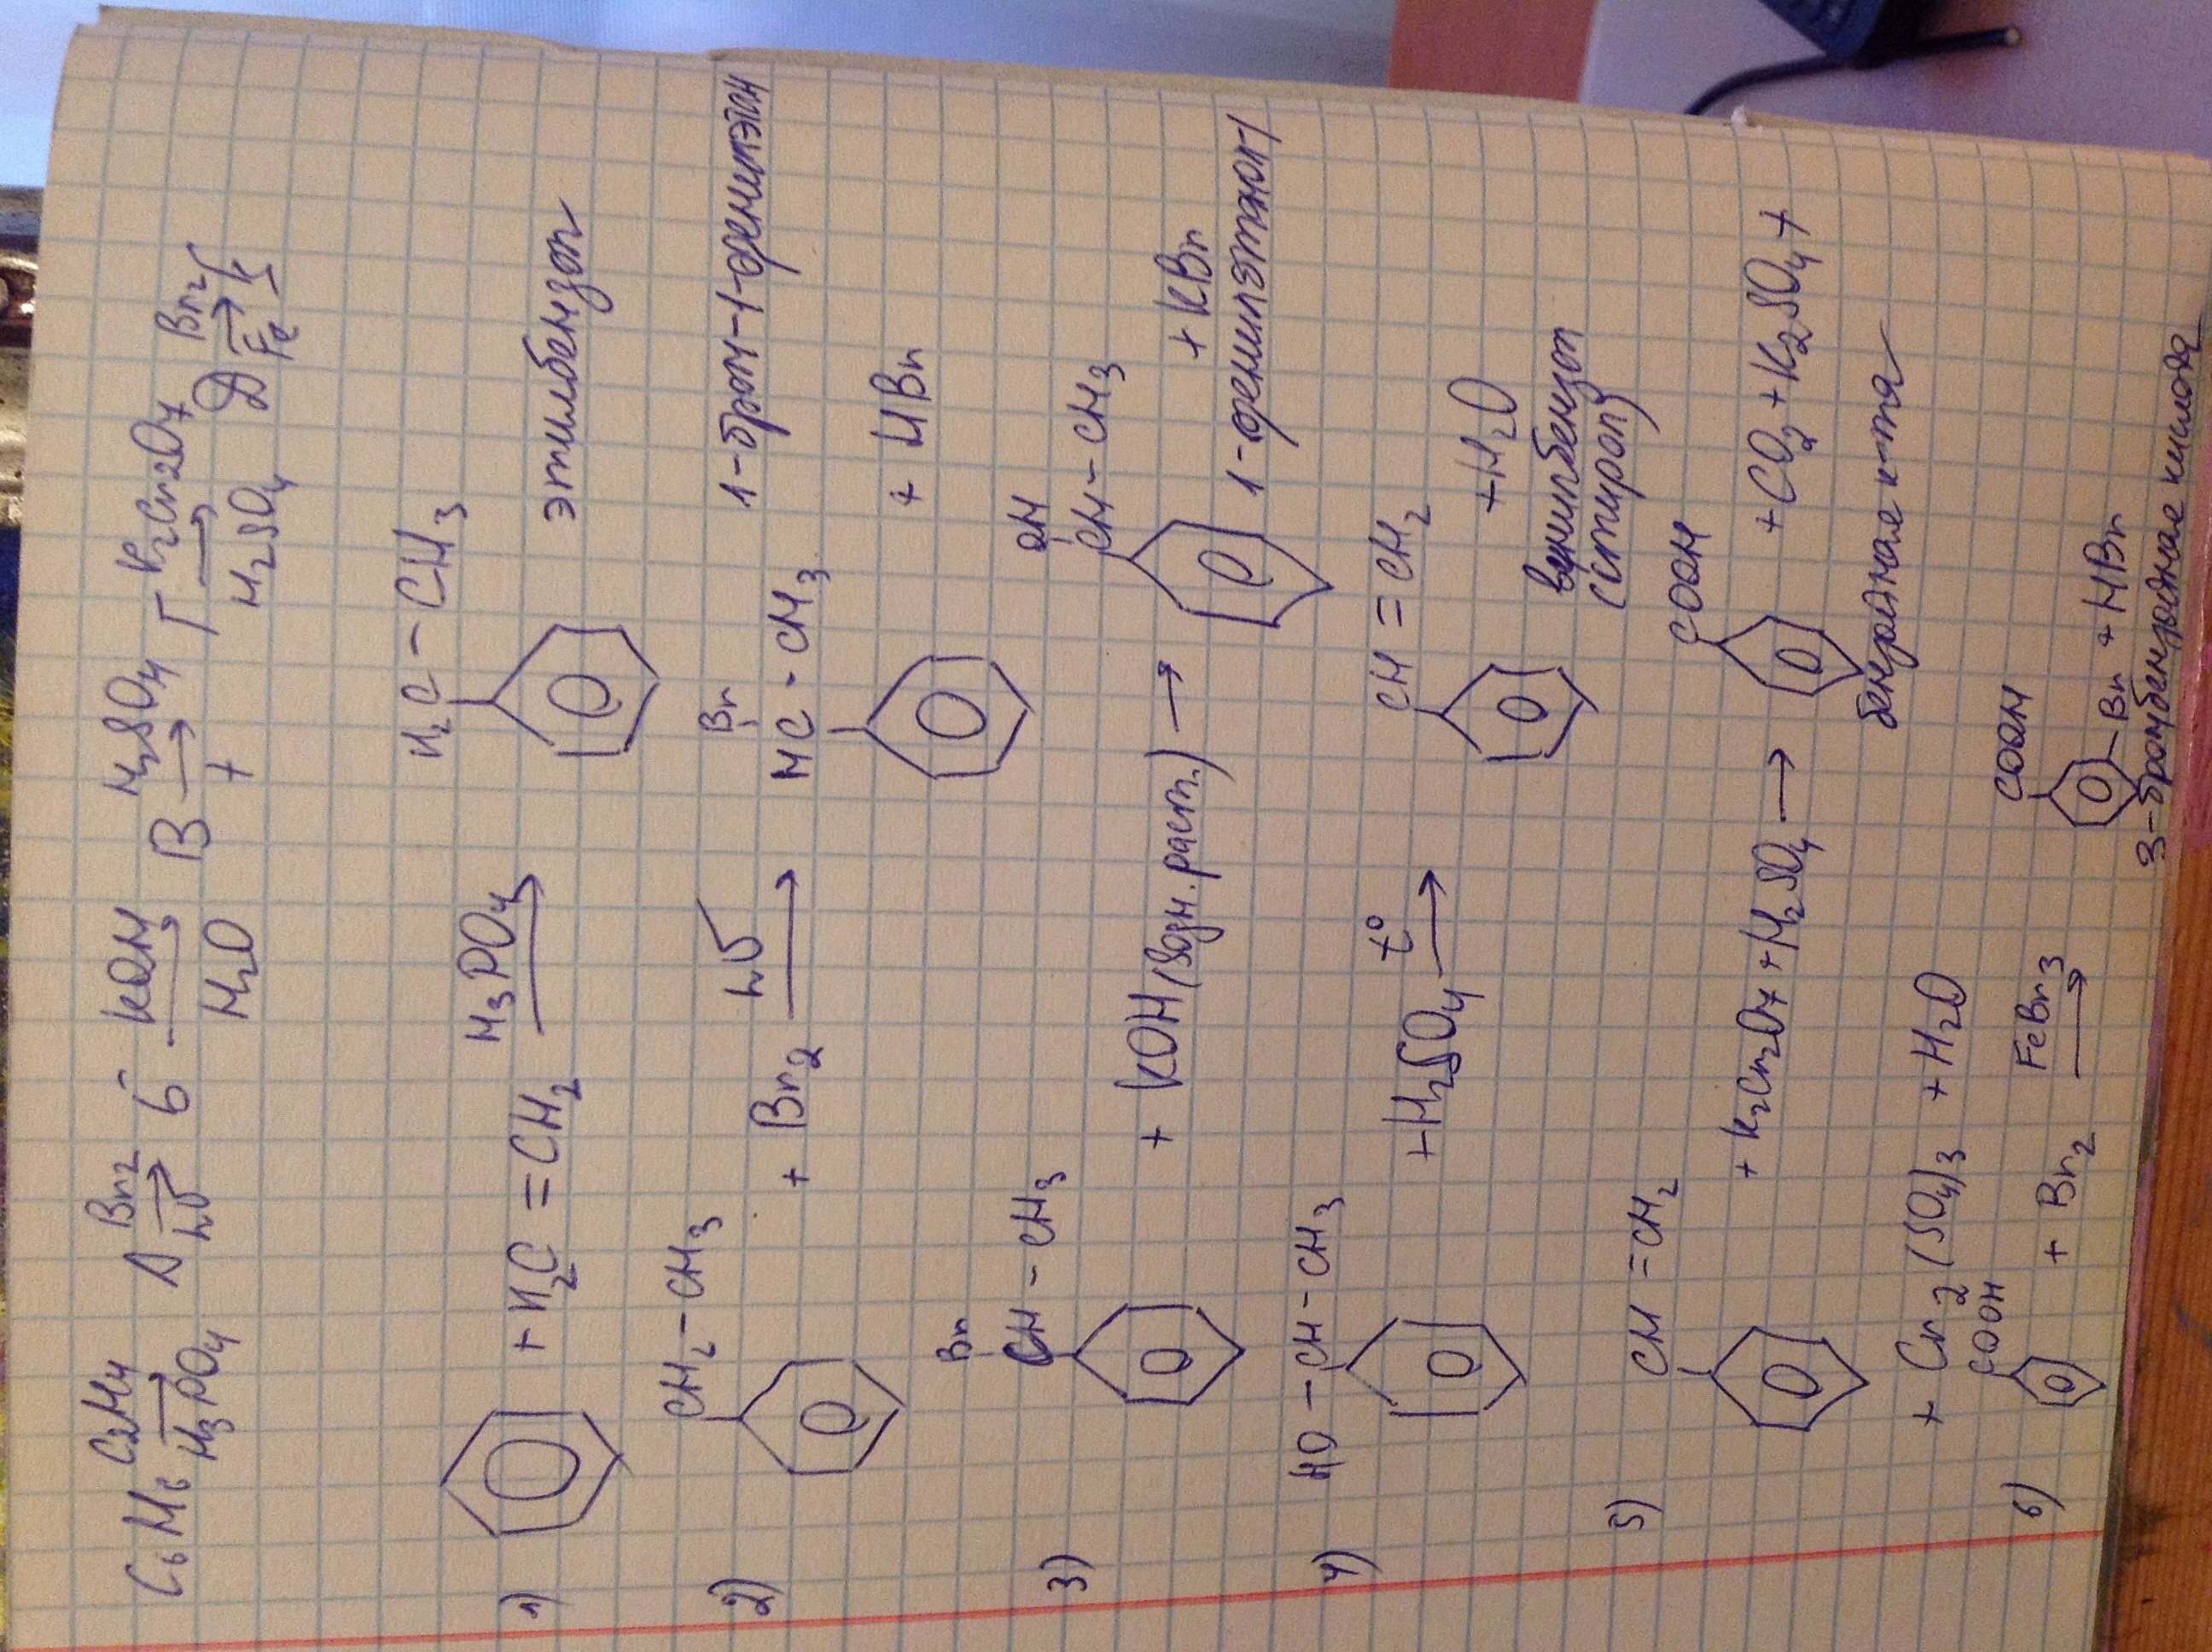 C₆H₆ C₂H₄ → H₃PO₄ А Br₂ → hν Б KOH → H₂O В H₂SO₄ → t Г K₂Cr₂O₇ → H₂SO₄ Д Br₂ → Fe
1) + H₂C = CH₂ H₃PO₄ → H₂C - CH₃
этилбензол
2) CH₂ - CH₃ + Br₂ hν → Br HC - CH₃ + HBr
1-бром-1-фенилэтан
3) Br CH - CH₃ + KOH (водн. раст.) → OH CH - CH₃ + KBr
1-фенилэтанол
4) HO - CH - CH₃ + H₂SO₄ t° → CH = CH₂ + H₂O
винилбензол
(стирол)
5) CH = CH₂ + K₂Cr₂O₇ + H₂SO₄ → COOH + CO₂ + K₂SO₄ +
бензойная к-та
+ Cr₂(SO₄)₃ + H₂O
6) COOH + Br₂ FeBr₃ → COOH Br + HBr
3-бромбензойная кислота